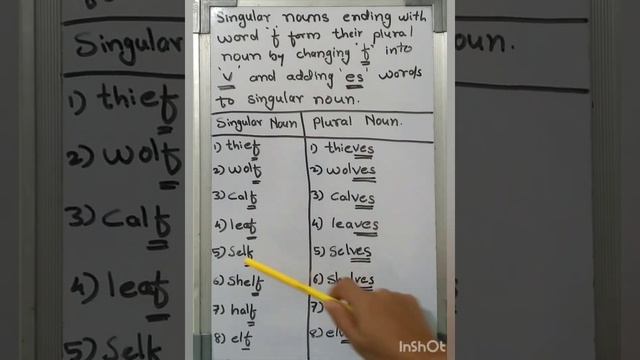 Singular nouns ending with
word 'f' form their plural
noun by changing 'f' into
'v' and adding 'es' words
to singular noun.
Singular Noun Plural Noun.
1) thief 1) thieves
2) wolf 2) wolves
3) calf 3) calves
4) leaf 4) leaves
5) Self 5) Selves
6) Shelf 6) Shelves
7) half 7)
8) elf 8)
InShOt